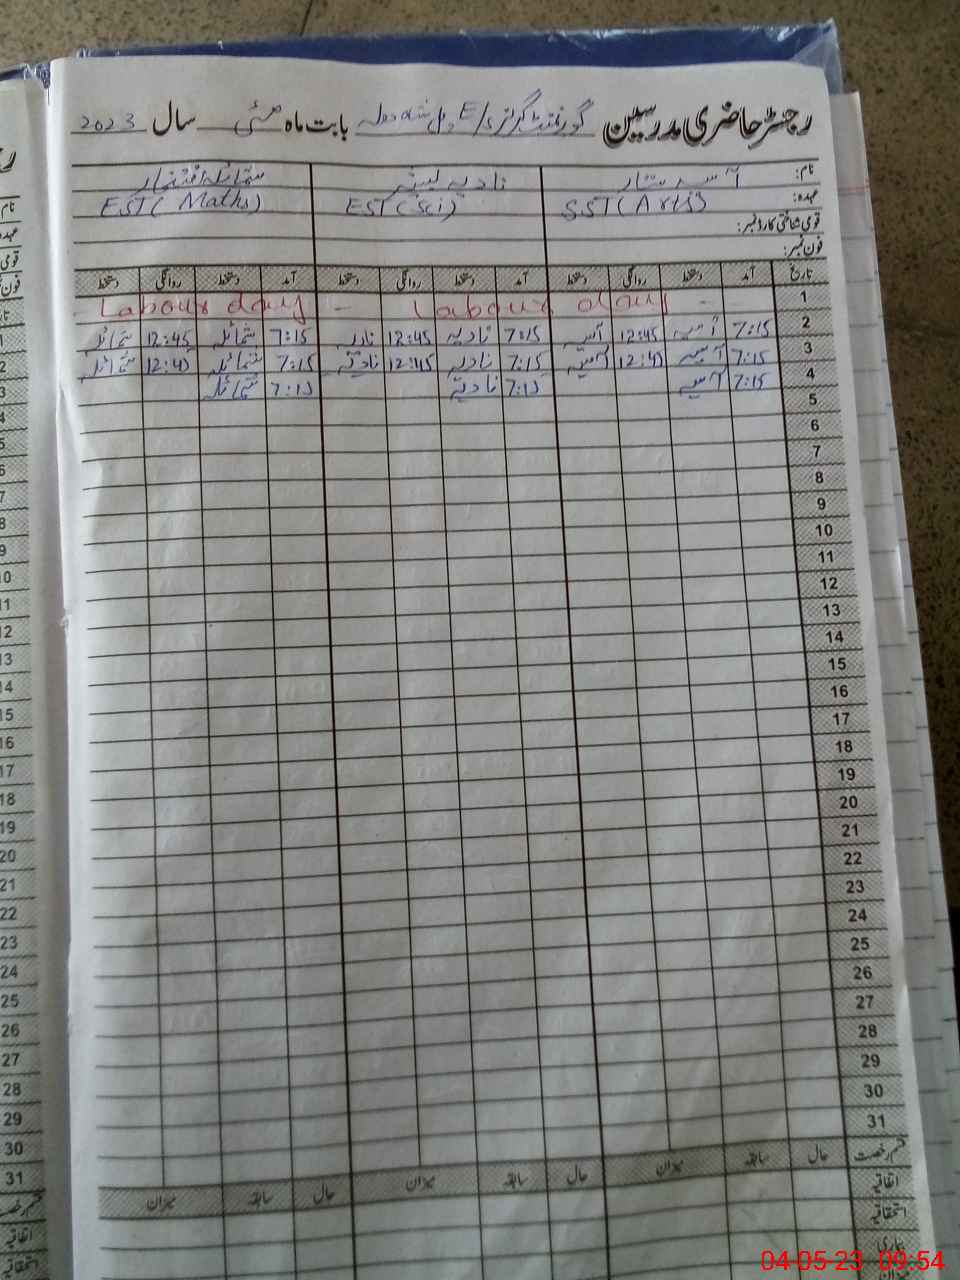 رجسٹر حاضری مدرسین گورنمنٹ گرلز E/S بابت ماہ مئی سال 2023
نام: آسیہ ستار نادیہ شمائلہ افتخار
عہدہ: SST (Arts) EST (Sci) EST (Maths)
قومی شناختی کارڈ نمبر:
فون نمبر:
تاریخ آمد دستخط روانگی دستخط آمد دستخط روانگی دستخط آمد دستخط روانگی دستخط
1 Labour day - Labour day - -
2 7:15 آسیہ 12:45 آسیہ 7:15 نادیہ 12:45 نادیہ 7:15 شمائلہ 12:45 شمائلہ
3 7:15 آسیہ 12:45 آسیہ 7:15 نادیہ 12:45 نادیہ 7:15 شمائلہ 12:45 شمائلہ
4 7:15 آسیہ 7:15 نادیہ 7:15 شمائلہ
5
6
7
8
9
10
11
12
13
14
15
16
17
18
19
20
21
22
23
24
25
26
27
28
29
30
31
قسم رخصت حال سابقہ میزان حال سابقہ میزان حال سابقہ میزان
اتفاقیہ
استحقاقیہ
بیماری
میزان
04-05-23 09:54